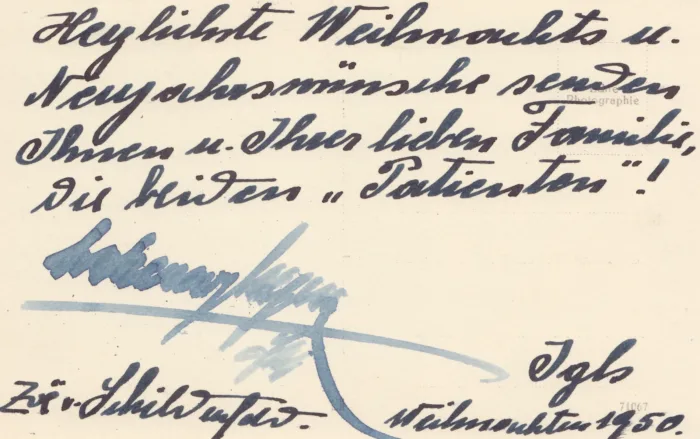 Herzlichste Weihnachts u.
Neujahrswünsche senden
Ihnen u. Ihrer lieben Familie,
die beiden „Patienten"!
Photographie
Zoë v. Schildenfeld.
Igls
Weihnachten 1950.
71067